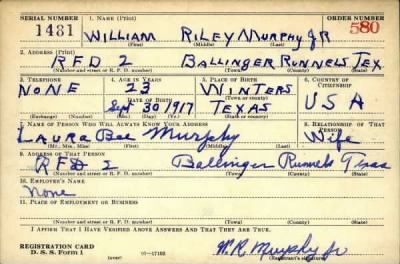 SERIAL NUMBER 1. NAME (Print) ORDER NUMBER
1431 WILLIAM RILEY MURPHY JR 580
(First) (Middle) (Last)
2. ADDRESS (Print)
RFD 2 BALLINGER RUNNELS TEX
(Number and street or R. F. D. number) (Town) (County) (State)
3. TELEPHONE 4. AGE IN YEARS 5. PLACE OF BIRTH 6. COUNTRY OF CITIZENSHIP
NONE 23 WINTERS
(Town or county)
DATE OF BIRTH
Sept 30/1917 TEXAS USA
(Exchange) (Number) (Mo.) (Day) (Yr.) (State or country)
7. NAME OF PERSON WHO WILL ALWAYS KNOW YOUR ADDRESS 8. RELATIONSHIP OF THAT PERSON
Laura Bee Murphy Wife
(Mr., Mrs., Miss) (First) (Middle) (Last)
9. ADDRESS OF THAT PERSON
RFD 2 Ballinger Runnels Texas
(Number and street or R. F. D. number) (Town) (County) (State)
10. EMPLOYER'S NAME
None
11. PLACE OF EMPLOYMENT OR BUSINESS
(Number and street or R. F. D. number) (Town) (County) (State)
I AFFIRM THAT I HAVE VERIFIED ABOVE ANSWERS AND THAT THEY ARE TRUE.
REGISTRATION CARD
D. S. S. Form 1 (over) W. R. Murphy Jr
(Registrant's signature)